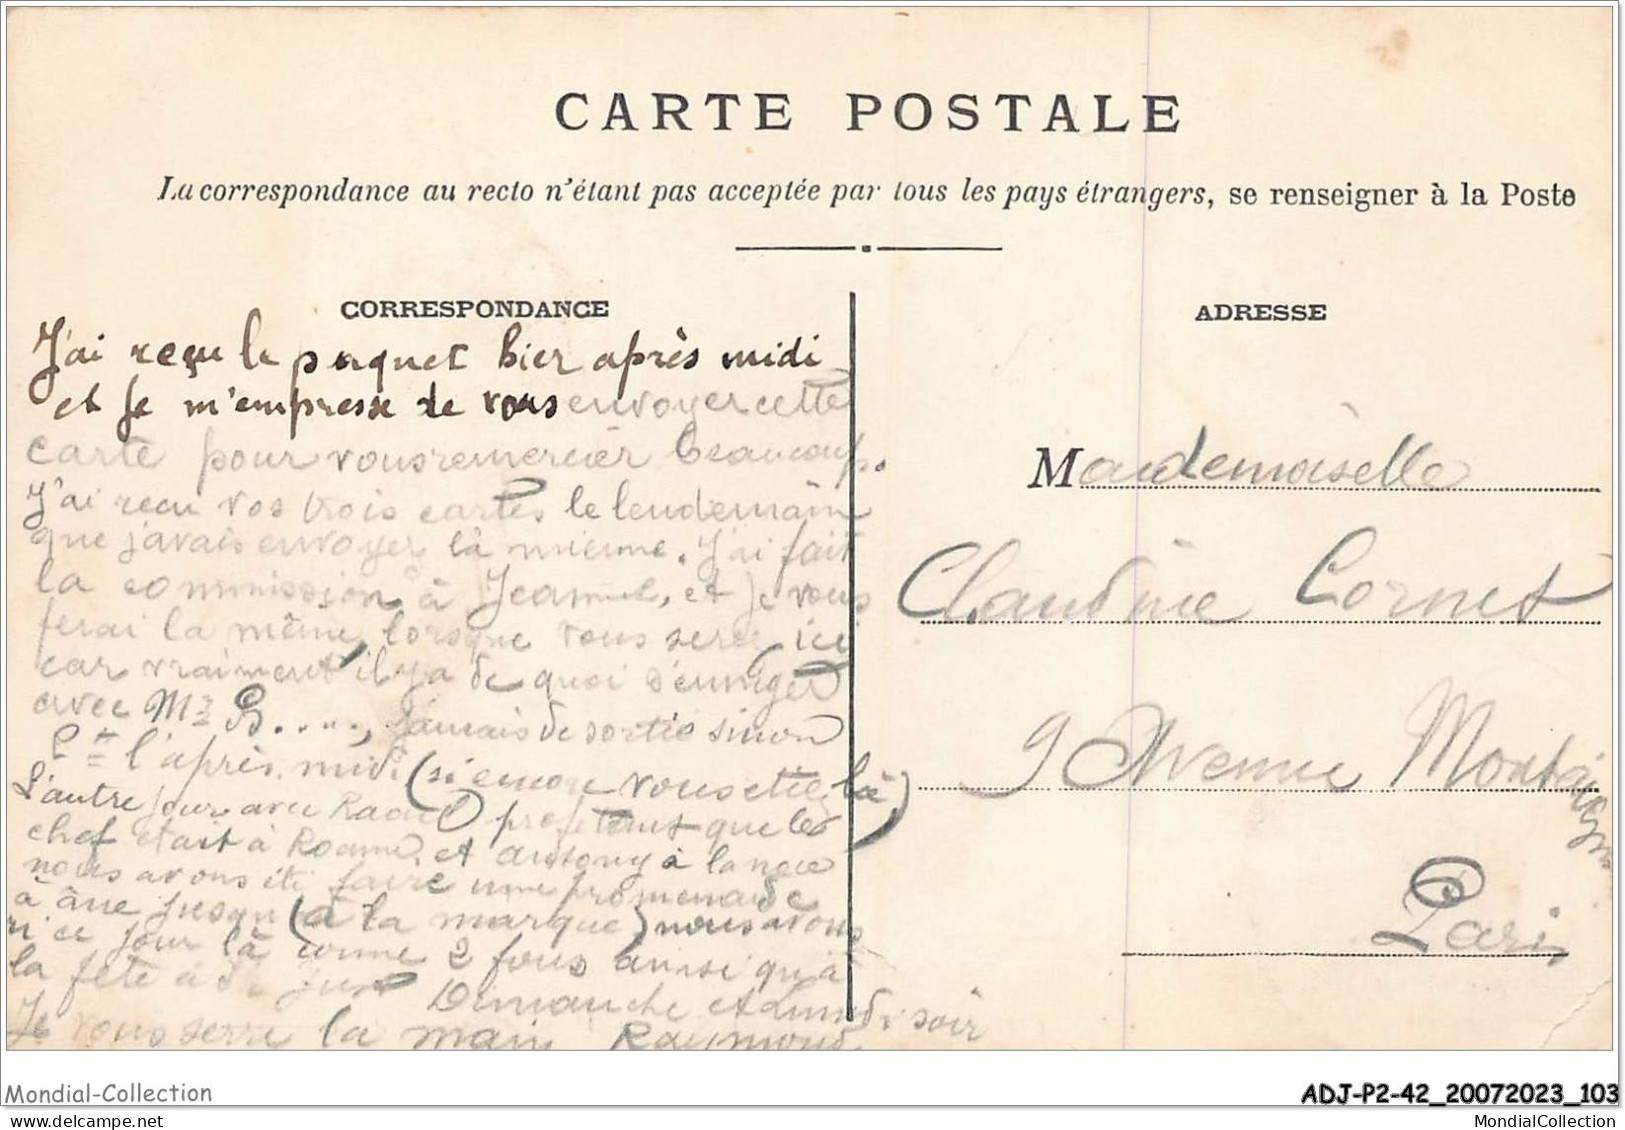 CARTE POSTALE
La correspondance au recto n'étant pas acceptée par tous les pays étrangers, se renseigner à la Poste
CORRESPONDANCE
J'ai reçu le paquet hier après midi
et je m'empresse de vous envoyer cette
carte pour vous remercier beaucoup.
J'ai recu vos trois cartes le lendemain
que j'avais envoyer là mienne. J'ai fait
la commission à Jeanne, et je vous
ferai la même, lorsque vous serez ici
car vraiment il y a de quoi
avec B....., jamais de sortie sinon
l'après midi (si encore vous etiez là)
L'autre jour avec Raoul que les
chef était à et à la
nous avons été faire une promenade
à âne (à la marque) nous avons
ri ce jour là comme 2 fous ainsi qu'à
la fête Dimanche et Lundi soir
Je vous serre la main Raymond
ADRESSE
Mademoiselle
Claudine Cornet
9 Avenue Montaigne
Paris
Mondial-Collection
ADJ-P2-42_20072023_103
www.delcampe.net
MondialCollection